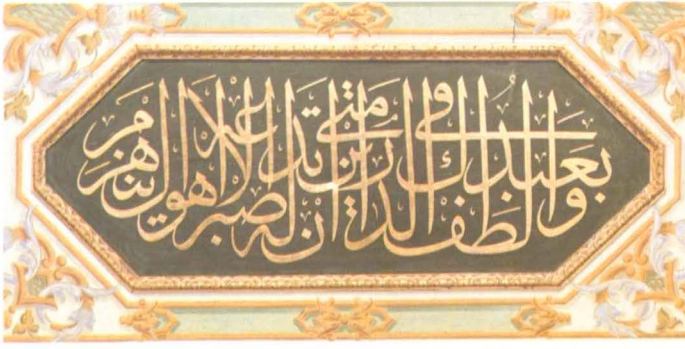 والطف بعبدك في الدارين ان له صبرا متى تدعه الاهوال ينهزم